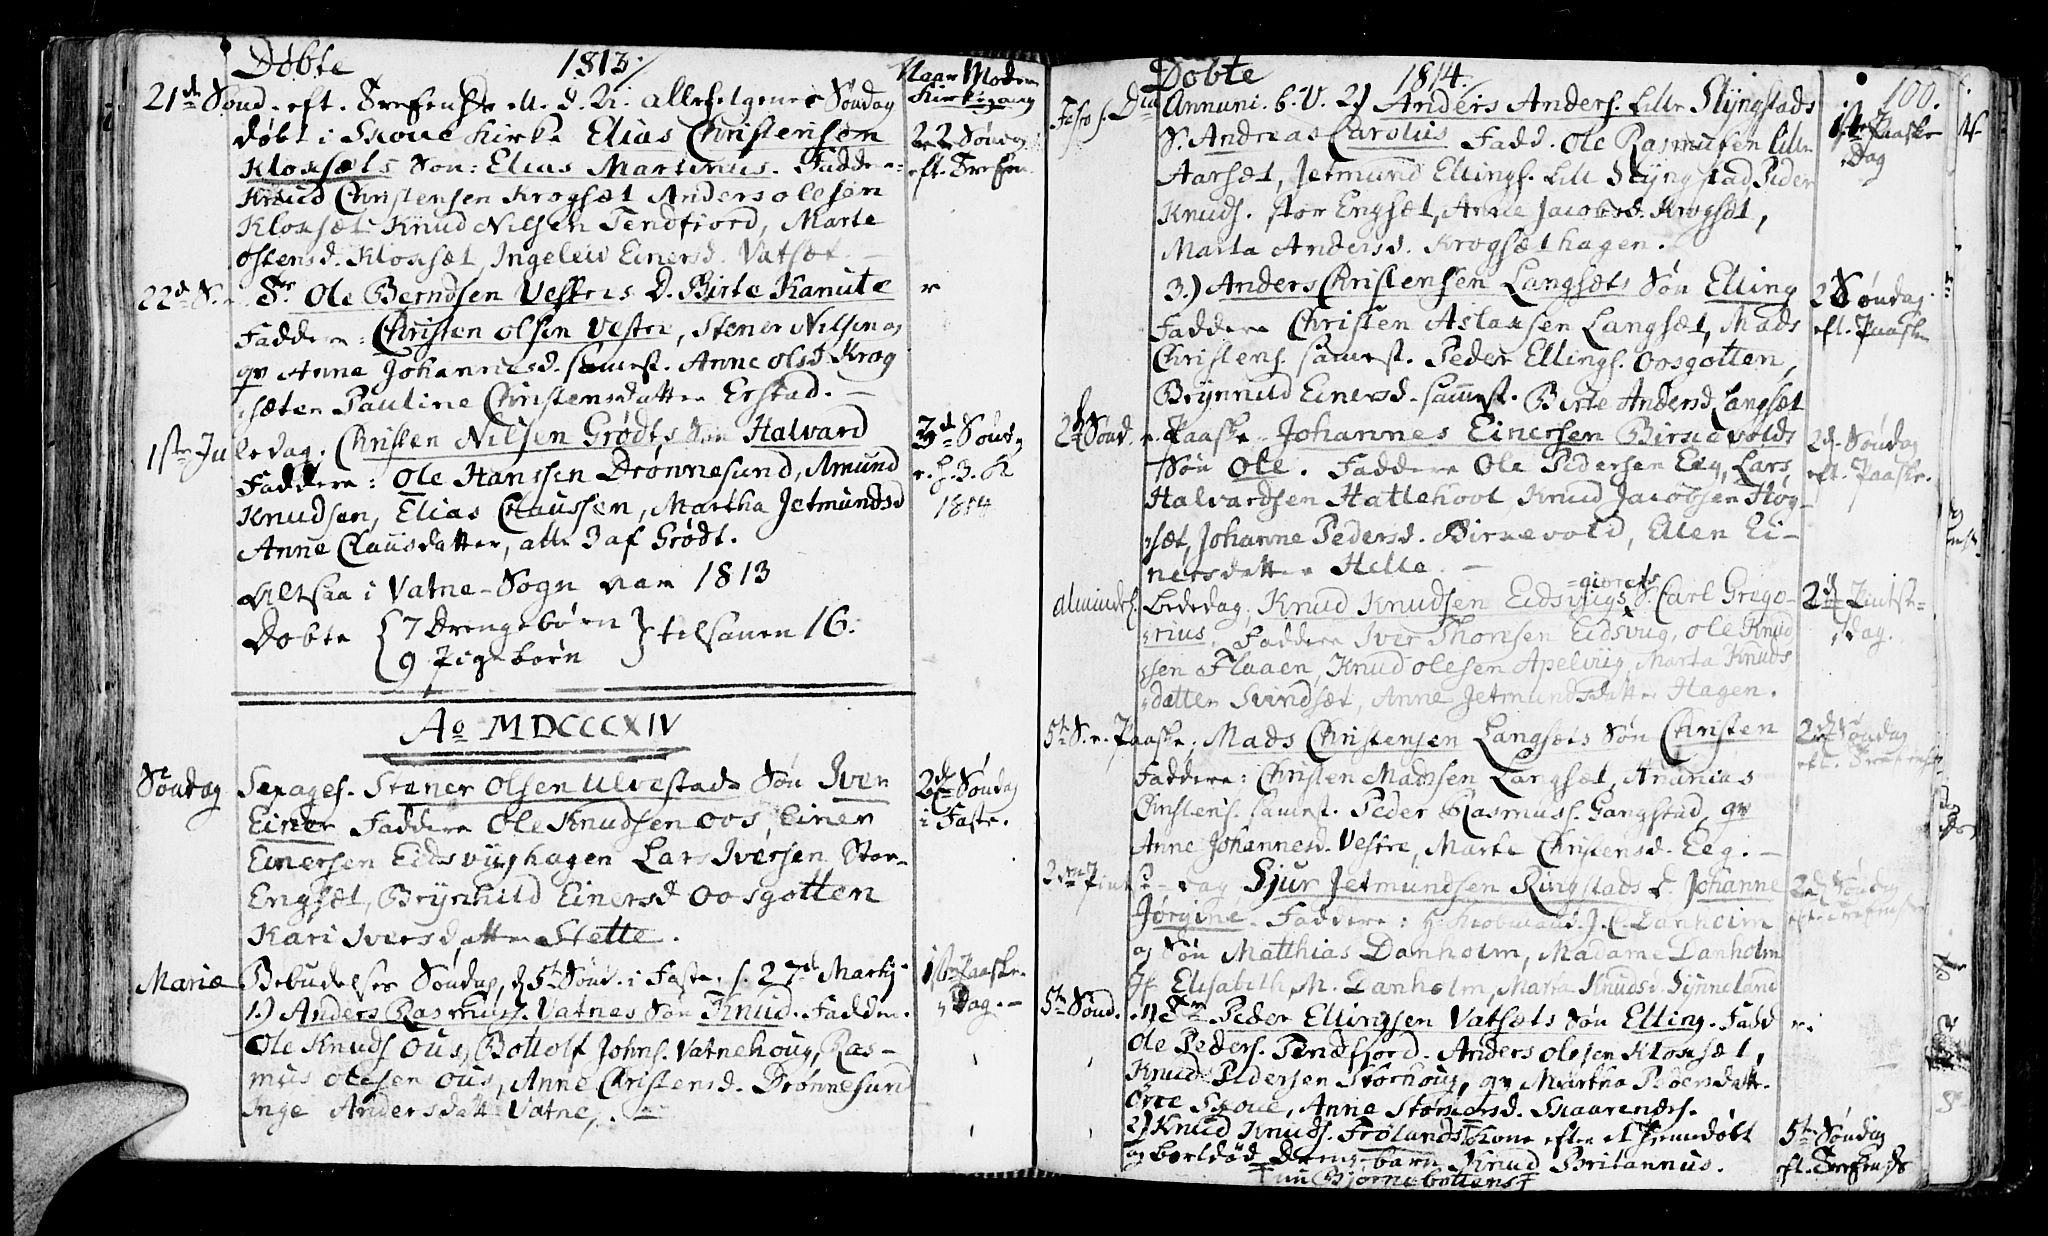 Døbte 1813.
Naar Moderen
Kirkegang
21de Sønd. eft. Trefoh. d. allehelgenes Søndag
døbt i Skoue Kirke Elias Christensen
Kloxsæts Søn: Elias Martinus. Faddere:
Knud Christensen Krogsæt Anders olesøn
Kloxsæt Knud Nilsen Tendfiord, Marte
Ostensd. Kloxsæt, Ingeleiv Einersd. Vatsæt. —
22de Søndag
eft. Trefoh.
22de S. Sr Ole Berndsen Vestres D. Birte Kanute
Faddere: Christen Olsen Vestre, Stener Nilsen og
qv Anne Johannesd. samest. Anne olsd. Krog
sæter Pauline Christensdatter Erstad. —
1ste Juledag. Christen Nilsen Grødts Søn Halvard
Faddere: Ole Hanssen Drønnesund, Amund
Knudsen, Elias Claussen, Martha Jetmundsd
Anne Clausdatter, alle 3 af Grødt.
3de Søndag
e. H. 3. K
1814
Altsaa i Vatne-Sogn var 1813
Døbte { 7 Drengebørn } tilsamen 16.
9 Pigebørn
Ao MDCCCXIV
Søndag Sexages. Stener Olsen Ulvestads Søn Iver
Einer Faddere Ole Knudsen Oos, Einer
Einersen Eidsvijghagen Lars Iversen Stor-
Engsæt, Brynhild Einersd Oosgotten
Kari Iversdatter Slette.
2de Søndag
i Faste.
Mariæ Bebudelses Søndag, d 5te Sønd. i Faste, s. 27de Martij
1.) Anders Rasmus. Vatnes Søn Knud. Faddere.
Ole Knuds Ous, Bottolf Johns. Vatnehoug, Ras-
mus olesen Ous, Anne Christensd. Drønnesund
Inge Andersdatt. Vatne. —
1ste Paaske-
Dag. —
Døbte 1814. 100.
Festo s. Die Annunc. b. V. 2) Anders Anders. Lille Slyngstads
S. Andreas Carolus Fadd. Ole Rasmusen Lille
Aarsæt, Jetmund Ellings. Lill Slyngstad Peder
Knuds. stor Engsæt, Anne Jacobsd. Krogsæt,
Marta Andersd. Krogsæthagen.
1ste Paaske
Dag
3.) Anders Christensen Langsæts Søn Elling
Faddere Christen Aslaksen Langsæt, Mads
Christens. samest. Peder Ellings. Oosgotten,
Brynnild Einersd. samest. Birte Andersd Langsæt
2de Søndag
eft. Paaske
2de Sønd. e. Paaske. Johannes Einersen Birkevolds
Søn Ole. Faddere Ole Pedersen Eeg, Lars
Halvardsen Hattehool Knud Jacobsen Høg-
sæt, Johanne Pedersd. Birkevold, Ellen Ei-
nersdatter Helle. —
2de Søndag
eft. Paaske.
Almindel. Bededag. Knud Knudsen Eidsvigs S. Carl Grego-
rius. Faddere Iver Thomsen Eidsvug, Ole Knud
sen Flaaen, Knud olesen Apelviig, Marta Knuds
datter Svindsæt, Anne Jetmundsdatter Hagen.
2den Pintse-
dag.
5te S. e. Paaske. Mads Christensen Langsæts Søn Christen
Faddere: Christen Madssen Langsæt, Ananias
Christens. samest. Peder Rasmuss. Gangstad, qv
Anne Johannesd. Vestre, Marte Christensd. Eeg. —
2de Søndag
eft. Trefoh.
2den Pintse-dag Sjur Jetmundsen Ringstads D. Johanne
Jørgine. Faddere: J. C. Danholm
og Søn Matthias Danholm, Madame Danholm
Jf Elisabeth M. Danholm, Marta Knudsd. Synneland
2de Søndag
5te Sønd. 1) Sr Peder Ellingsen Vatsæts Søn Elling. Fadd
Ole Peders. Tendfjord. Anders olesen Kloxsæt,
Knud Pedersen Storhoug, qv Martha Pedersdatt.
Skoue, Anne Størkersd. Skaarenæs.
2) Knud Knuds. Frølands Kone efter et hiemedøbt
og bortdød Drengebarn Knud Britannus.
5te Søndag
eft. Trefoh.